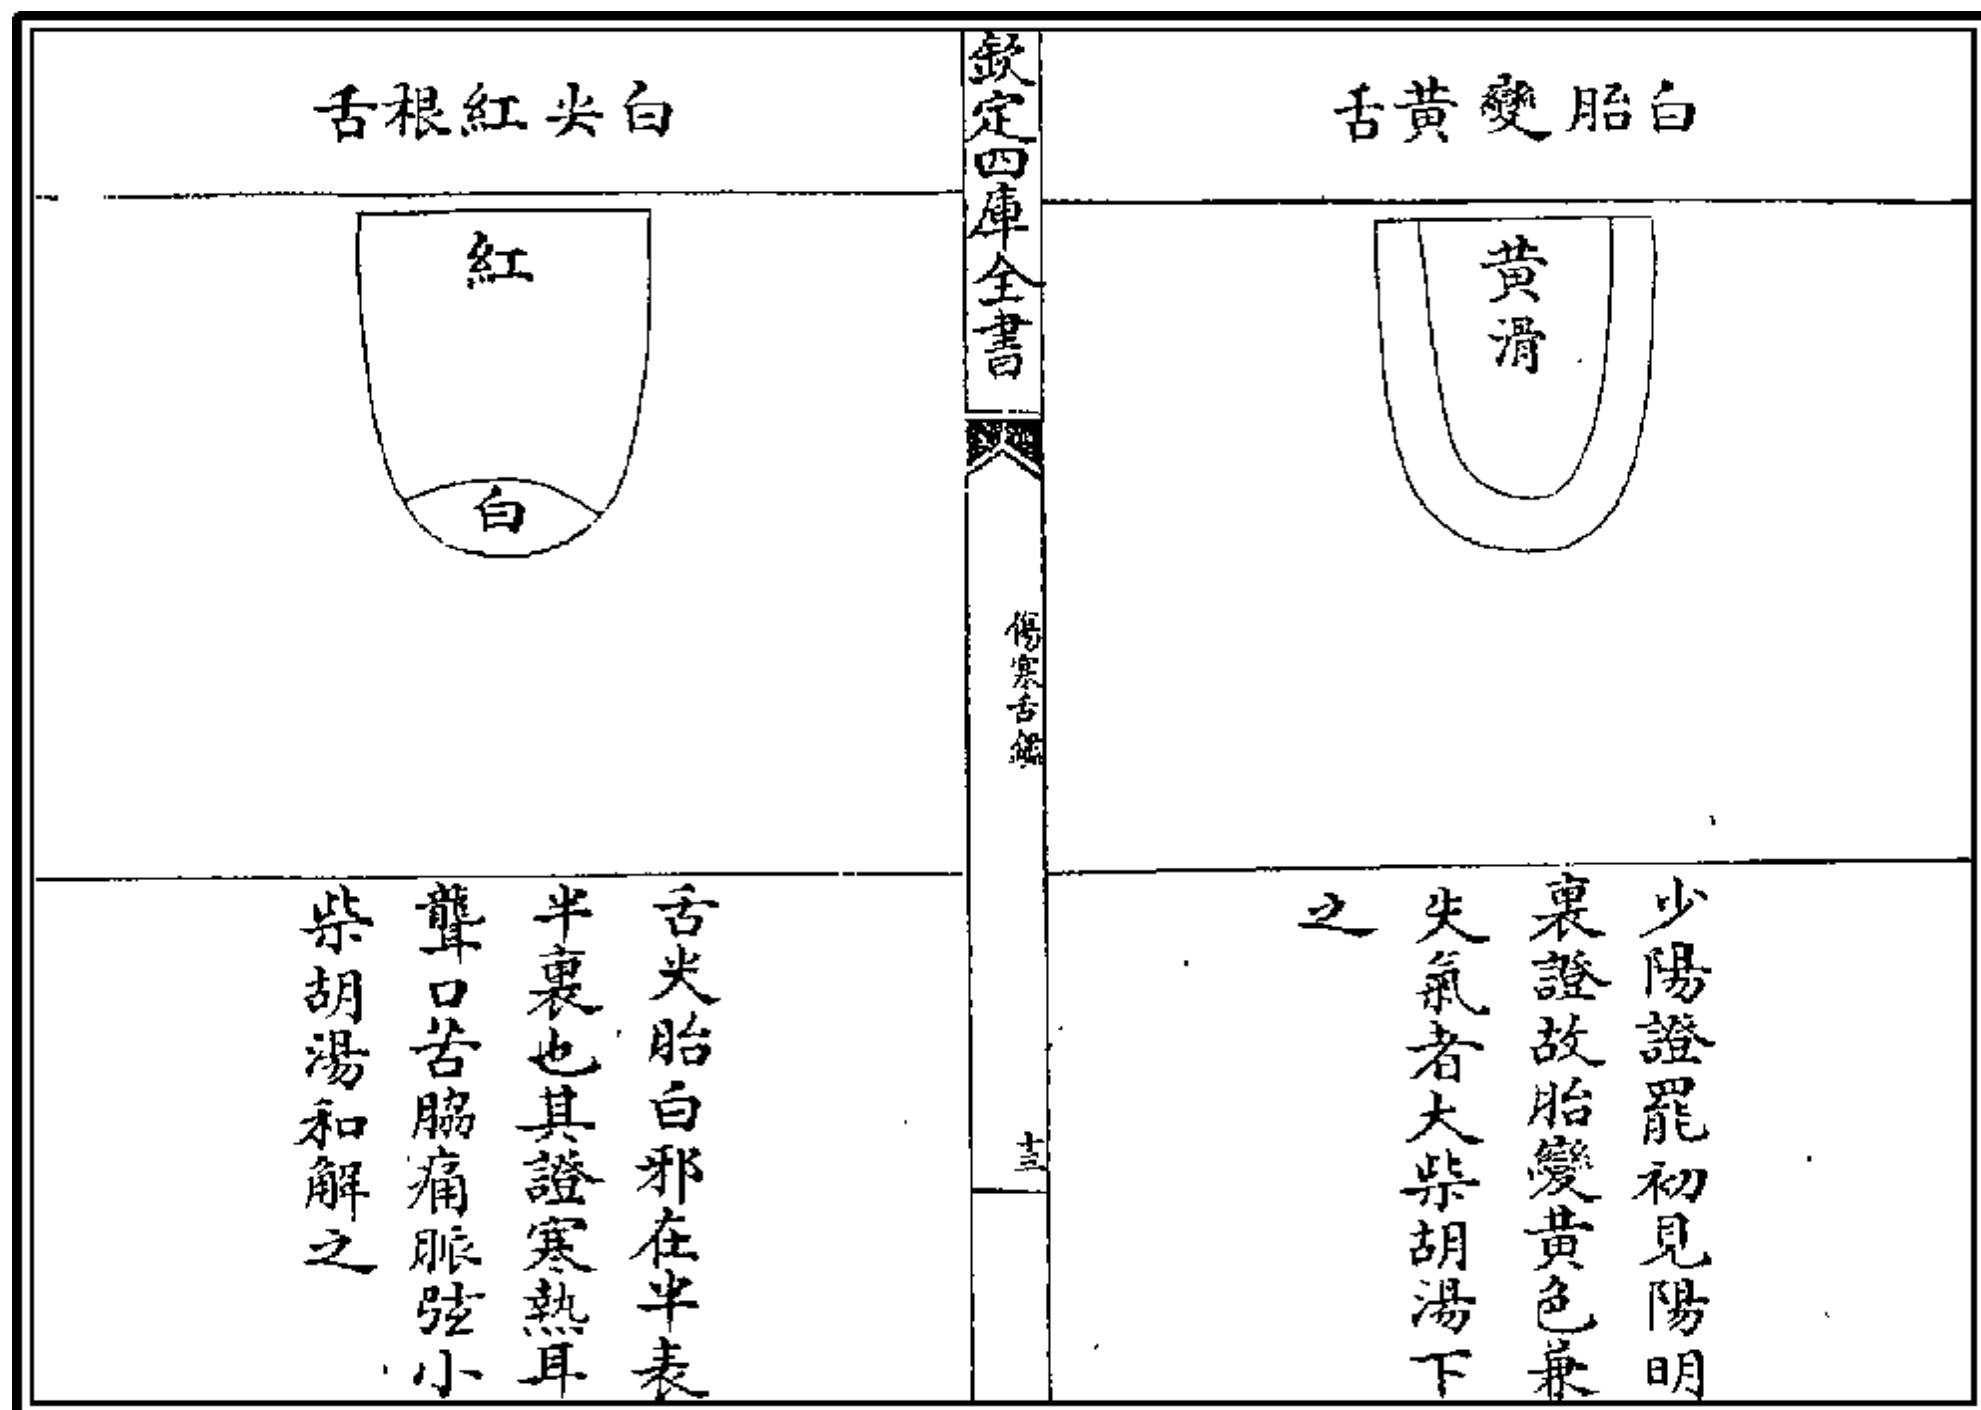 白胎變黃舌
黃滑
少陽證罷初見陽明
裏證故胎變黃色兼
失氣者大柴胡湯下
之
欽定四庫全書
傷寒舌鑑
十三
白尖紅根舌
紅
白
舌尖胎白邪在半表
半裏也其證寒熱耳
聾口苦脇痛脈弦小
柴胡湯和解之